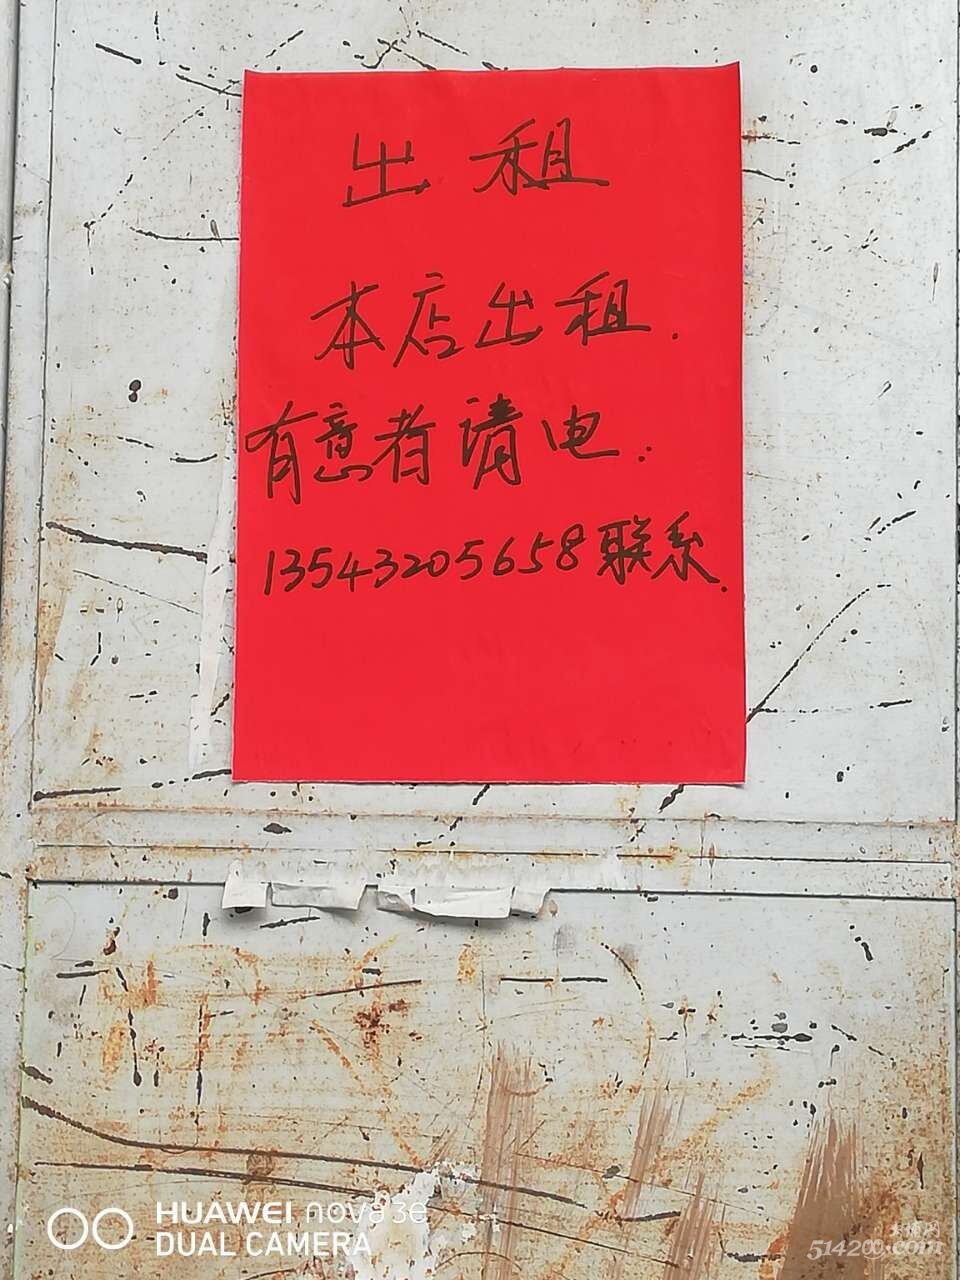 出租
本店出租.
有意者请电.
13543205658联系.
HUAWEI nova 3e
DUAL CAMERA
514200.com